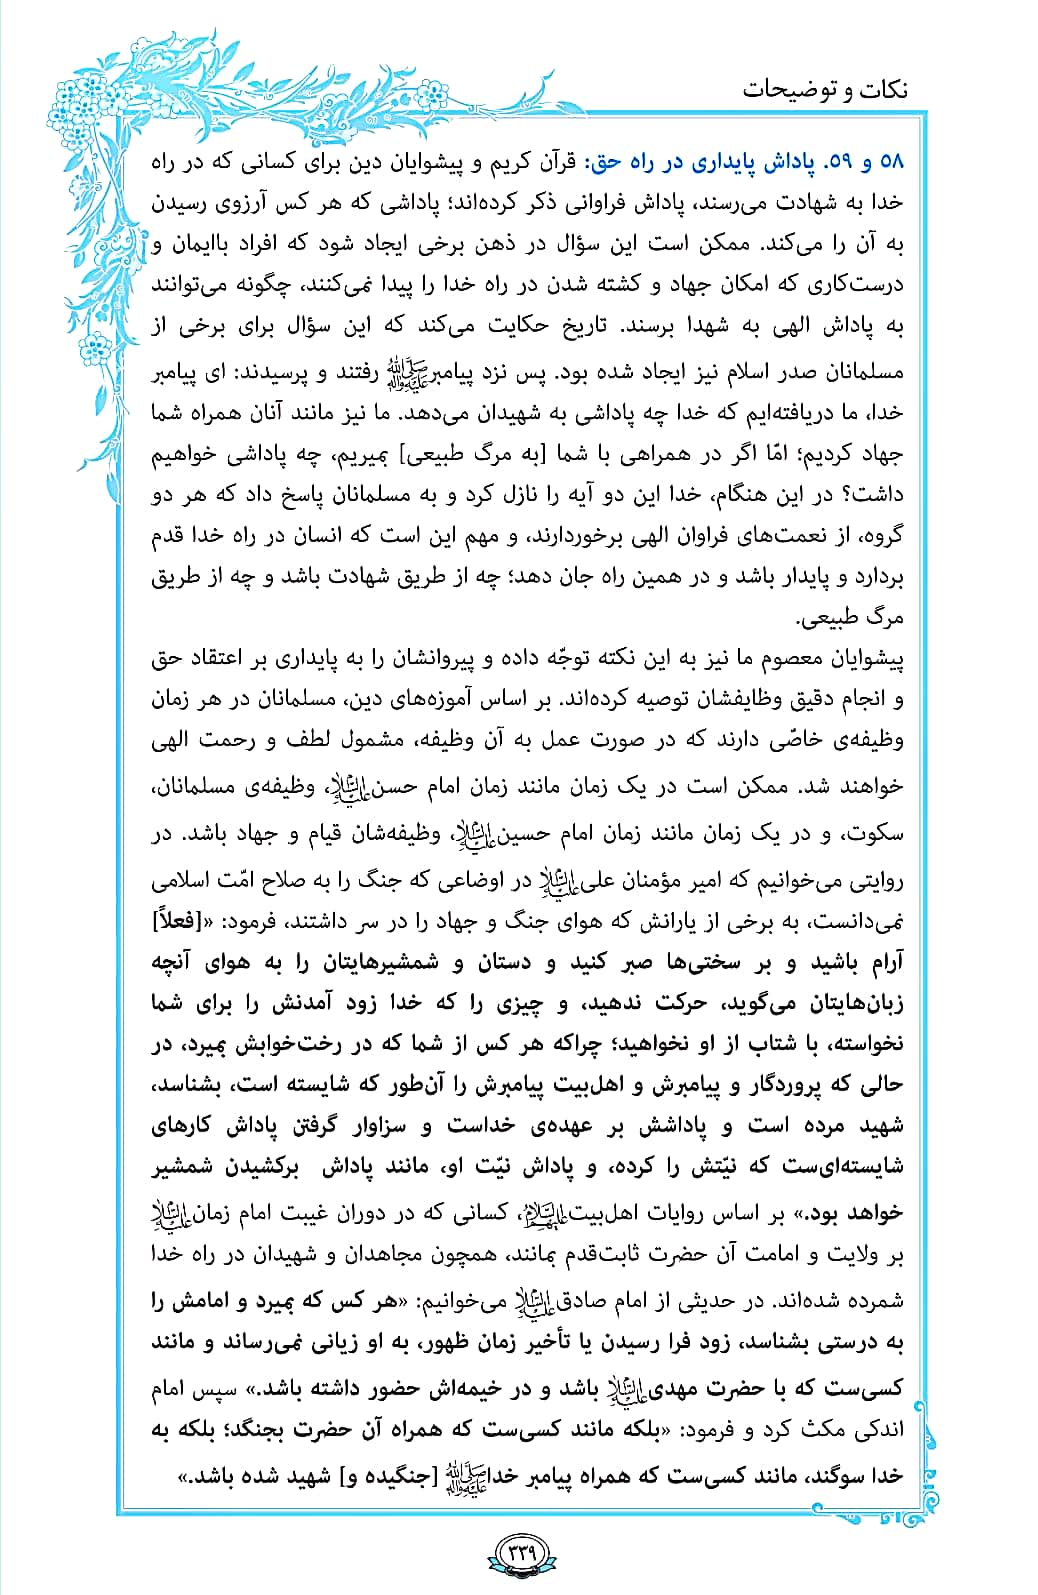 نکات و توضیحات
۵۸ و ۵۹. پاداش پایداری در راه حق: قرآن کریم و پیشوایان دین برای کسانی که در راه
خدا به شهادت می‌رسند، پاداش فراوانی ذکر کرده‌اند؛ پاداشی که هر کس آرزوی رسیدن
به آن را می‌کند. ممکن است این سؤال در ذهن برخی ایجاد شود که افراد باایمان و
درست‌کاری که امکان جهاد و کشته شدن در راه خدا را پیدا نمی‌کنند، چگونه می‌توانند
به پاداش الهی به شهدا برسند. تاریخ حکایت می‌کند که این سؤال برای برخی از
مسلمانان صدر اسلام نیز ایجاد شده بود. پس نزد پیامبر صلی الله علیه وآله رفتند و پرسیدند: ای پیامبر
خدا، ما دریافته‌ایم که خدا چه پاداشی به شهیدان می‌دهد. ما نیز مانند آنان همراه شما
جهاد کردیم؛ امّا اگر در همراهی با شما [به مرگ طبیعی] بمیریم، چه پاداشی خواهیم
داشت؟ در این هنگام، خدا این دو آیه را نازل کرد و به مسلمانان پاسخ داد که هر دو
گروه، از نعمت‌های فراوان الهی برخوردارند، و مهم این است که انسان در راه خدا قدم
بردارد و پایدار باشد و در همین راه جان دهد؛ چه از طریق شهادت باشد و چه از طریق
مرگ طبیعی.
پیشوایان معصوم ما نیز به این نکته توجّه داده و پیروانشان را به پایداری بر اعتقاد حق
و انجام دقیق وظایفشان توصیه کرده‌اند. بر اساس آموزه‌های دین، مسلمانان در هر زمان
وظیفه‌ی خاصّی دارند که در صورت عمل به آن وظیفه، مشمول لطف و رحمت الهی
خواهند شد. ممکن است در یک زمان مانند زمان امام حسن علیه السلام، وظیفه‌ی مسلمانان،
سکوت، و در یک زمان مانند زمان امام حسین علیه السلام، وظیفه‌شان قیام و جهاد باشد. در
روایتی می‌خوانیم که امیر مؤمنان علی علیه السلام در اوضاعی که جنگ را به صلاح امّت اسلامی
نمی‌دانست، به برخی از یارانش که هوای جنگ و جهاد را در سر داشتند، فرمود: «[فعلاً]
آرام باشید و بر سختی‌ها صبر کنید و دستان و شمشیرهایتان را به هوای آنچه
زبان‌هایتان می‌گوید، حرکت ندهید، و چیزی را که خدا زود آمدنش را برای شما
نخواسته، با شتاب از او نخواهید؛ چراکه هر کس از شما که در رخت‌خوابش بمیرد، در
حالی که پروردگار و پیامبرش و اهل‌بیت پیامبرش را آن‌طور که شایسته است، بشناسد،
شهید مرده است و پاداشش بر عهده‌ی خداست و سزاوار گرفتن پاداش کارهای
شایسته‌ای‌ست که نیّتش را کرده، و پاداش نیّت او، مانند پاداش برکشیدن شمشیر
خواهد بود.» بر اساس روایات اهل‌بیت علیهم السلام، کسانی که در دوران غیبت امام زمان علیه السلام
بر ولایت و امامت آن حضرت ثابت‌قدم بمانند، همچون مجاهدان و شهیدان در راه خدا
شمرده شده‌اند. در حدیثی از امام صادق علیه السلام می‌خوانیم: «هر کس که بمیرد و امامش را
به درستی بشناسد، زود فرا رسیدن یا تأخیر زمان ظهور، به او زیانی نمی‌رساند و مانند
کسی‌ست که با حضرت مهدی علیه السلام باشد و در خیمه‌اش حضور داشته باشد.» سپس امام
اندکی مکث کرد و فرمود: «بلکه مانند کسی‌ست که همراه آن حضرت بجنگد؛ بلکه به
خدا سوگند، مانند کسی‌ست که همراه پیامبر خدا صلی الله علیه وآله [جنگیده و] شهید شده باشد.»
۳۳۹